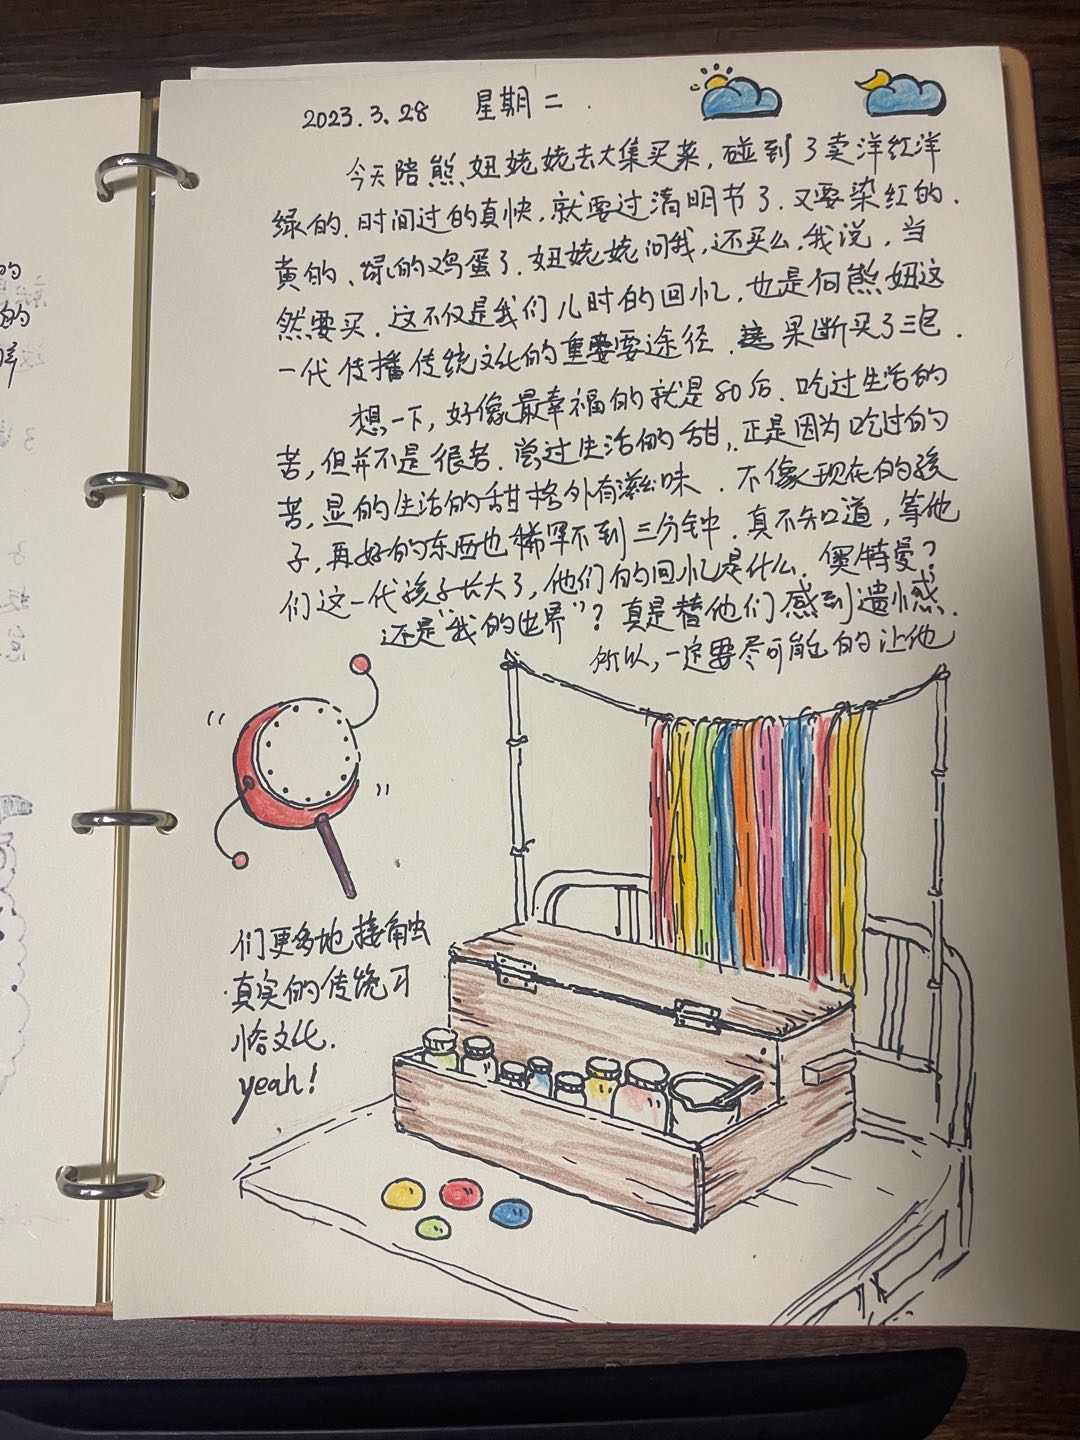 2023.3.28 星期二.
今天陪熊妞姥姥去大集买菜,碰到了卖洋红洋
绿的.时间过的真快,就要过清明节了.又要染红的.
黄的、绿的鸡蛋了.妞姥姥问我,还买么,我说,当
然要买.这不仅是我们儿时的回忆.也是向熊妞这
一代传播传统文化的重要途径.果断买了三包.
想一下,好像最幸福的就是80后.吃过生活的
苦,但并不是很苦.尝过生活的甜,正是因为吃过的
苦,显的生活的甜格外有滋味.不像现在的孩
子,再好的东西也稀罕不到三分钟.真不知道,等他
们这一代孩子长大了,他们的回忆是什么.奥特曼?
还是"我的世界"?真是替他们感到遗憾.
所以,一定要尽可能的让他
们更多地接触
真实的传统习
俗文化.
yeah!
的
的